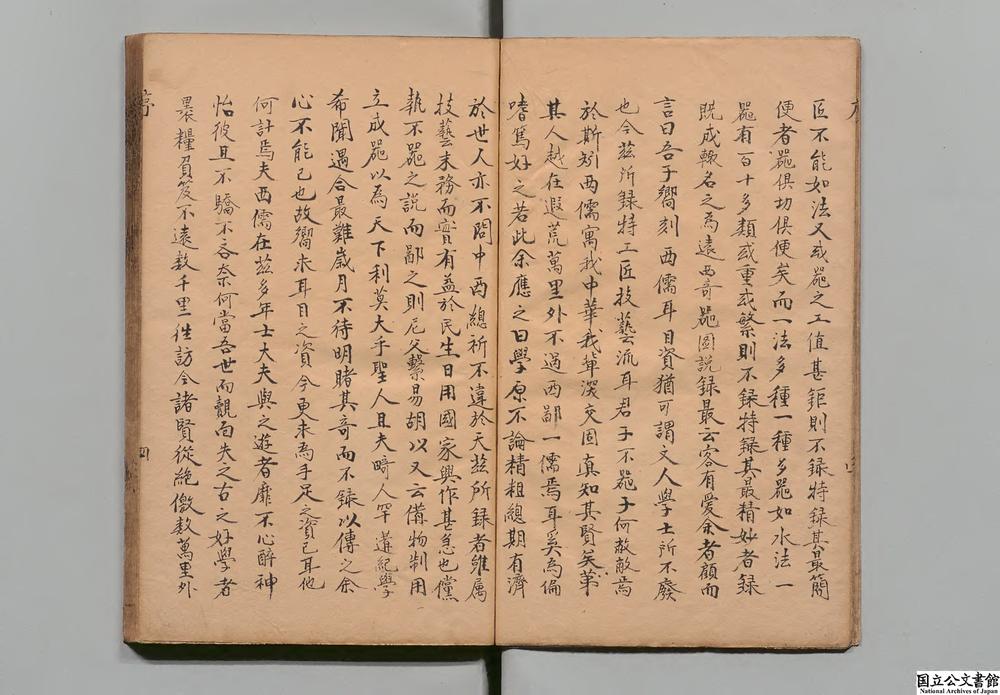 匠不能如法又或器之工值甚鉅則不錄特錄其最簡
便者器俱切俱便矣而一法多種一種多器如水法一
器有百十多類或重或繁則不錄特錄其最精妙者錄
既成輙名之為遠西奇器圖說錄最云客有愛余者顧而
言曰吾子嚮刻西儒耳目資猶可謂文人學士所不廢
也今茲所錄特工匠技藝流耳君子不器子何敝敝焉
於斯矧西儒寓我中華我輩深交固真知其賢矣第
其人越在遐荒萬里外不過西鄙一儒焉耳奚為偏
嗜篤好之若此余應之曰學原不論精粗總期有濟
於世人亦不問中西總祈不違於天茲所錄者雖属
技藝末務而實有益於民生日用國家興作甚急也儻
執不器之說而鄙之則尼父繫易胡以又云備物制用
立成器以為天下利莫大乎聖人且夫畸人罕遘紀學
希聞遇合最難歲月不待明睹其奇而不錄以傳之余
心不能已也故嚮求耳目之資今更求為手足之資已耳他
何計焉夫西儒在茲多年士大夫與之遊者靡不心醉神
怡彼且不驕不吝奈何當吾世而覿面失之古之好學者
裹糧負笈不遠數千里往訪今諸賢從絶徼數萬里外
序 四
国立公文書館
National Archives of Japan